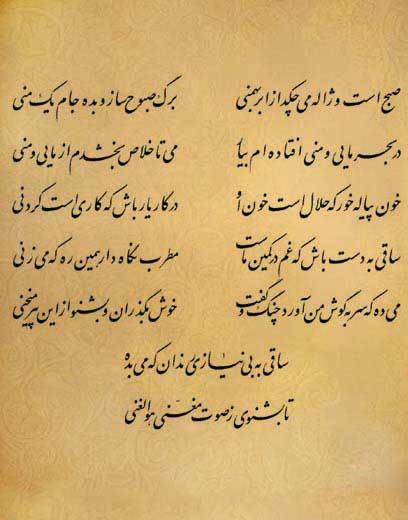 صبح است و ژاله می چکد از ابر بهمنی برگ صبوح ساز و بده جام یک منی
در بحر مایی و منی افتاده ام بیار می تا خلاص بخشدم از مایی و منی
خون پیاله خور که حلال است خون او در کار یار باش که کاری است کردنی
ساقی به دست باش که غم در کمین ماست مطرب نگاه دار همین ره که می زنی
می ده که سر به گوش من آورد چنگ و گفت خوش بگذران و بشنو از این پیر منحنی
ساقی به بی نیازی رندان که می بده
تا بشنوی ز صوت مغنی هو الغنی